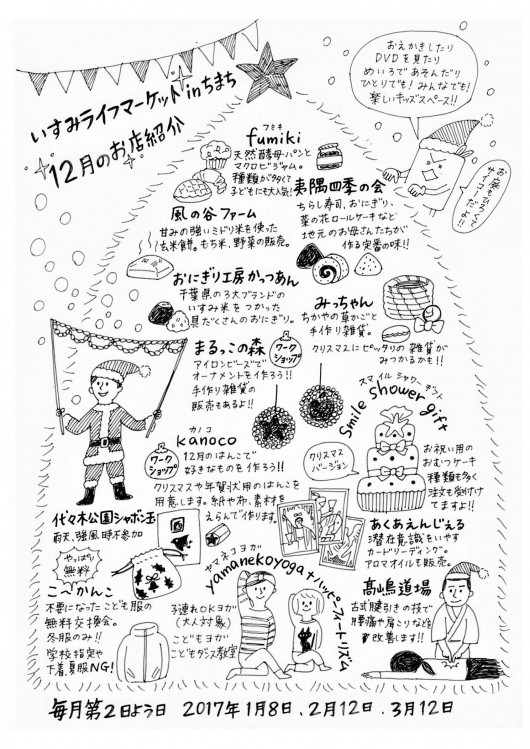 いすみライフマーケット inちまち
12月のお店紹介
おえかきしたり
DVDを見たり
めいろであそんだり
ひとりでも!みんなでも!
楽しいキッズスペース!!
フミキ
fumiki
天然酵母パンと
マクロビジャム。
種類が多くて
子どもにも大人気!
夷隅四季の会
ちらし寿司、おにぎり、
菜の花ロールケーキなど
地元のお母さんたちが
作る定番の味!!
風の谷ファーム
甘みの強いミドリ米を使った
玄米餅。もち米、野菜の販売。
おにぎり工房かっつあん
千葉県の3大ブランドの
いすみ米をつかった
具だくさんのおにぎり。
みっちゃん
ちかやの草かごと
手作り雑貨。
クリスマスにピッタリの雑貨が
みつかるかも!!
まるっこの森
ワーク
ショップ
アイロンビーズで
オーナメントを作ろう!!
手作り雑貨の
販売もあるよ!!
カノコ
kanoco
ワーク
ショップ
12月のはんこで
好きなものを作ろう!!
クリスマスや年賀状用のはんこを
用意します。紙や布、素材を
えらんで作ります。
スマイル シャワー ギフト
Smile shower gift
クリスマス
バージョン
お祝い用の
おむつケーキ
種類も多く
注文も受付け
てますよ!!
代々木公園シャボン玉
雨天、強風時不参加
やっぱり
無料
こ〜かんこ
不要になったこども服の
無料交換会。
冬服のみ!!
学校指定や
下着、夏服NG!
ヤマネコヨガ
yamanekoyoga+ハッピーフィートリズム
子連れOKヨガ
(大人対象)
こどもヨガ
こどもダンス教室
あくあえんじぇる
潜在意識をいやす
カードリーディング。
アロマオイルも販売。
髙嶋道場
古式腱引きの技で
腰痛や肩こりなどを
改善します!!
毎月第2日よう日 2017年1月8日、2月12日、3月12日